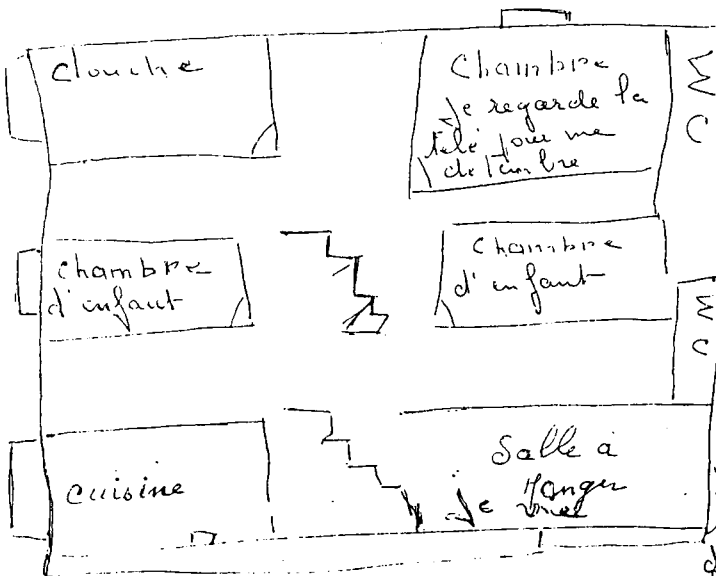 douche
Chambre
je regarde la
télé pour me
WC
chambre
d'enfant
chambre
d'enfant
WC
cuisine
Salle à
manger
je